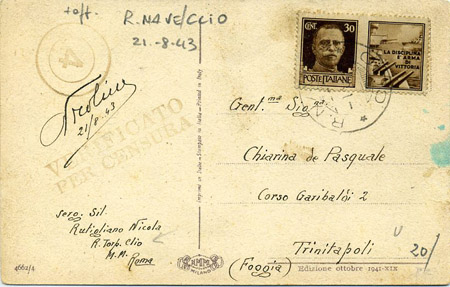 R. NAVE CLIO
21.-8-43
4
CENT. 30
POSTE ITALIANE
LA DISCIPLINA
È ARMA DI
VITTORIA
Nicolino
21/8.43
VERIFICATO
PER CENSURA
Gent.ma Sig.na
Chiarina de Pasquale
Corso Garibaldi 2
Trinitapoli
(Foggia)
serg. Sil.
Rutigliano Nicola
R. Torp. Clio
M.M.
Roma
MILANO
Edizione ottobre 1941-XIX
4662/4
20/